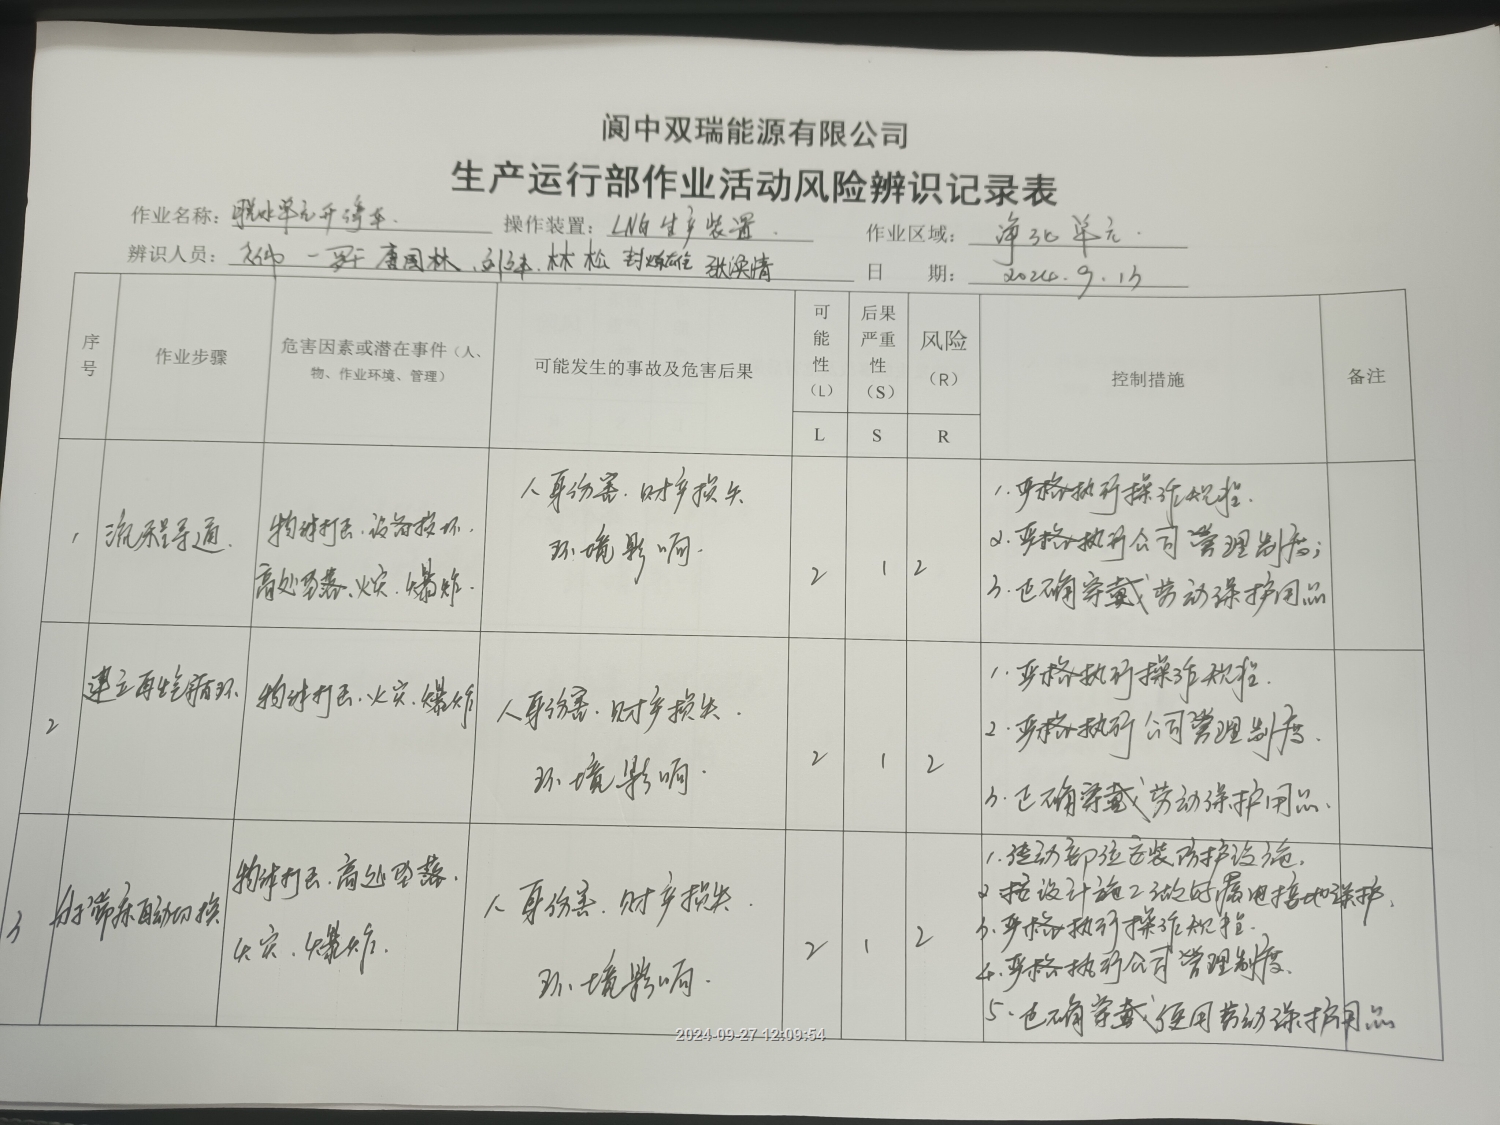 阆中双瑞能源有限公司
生产运行部作业活动风险辨识记录表
作业名称：脱水单元开停车. 操作装置：LNG生产装置. 作业区域：净化单元.
辨识人员：唐国林、林松 日 期：2024.9.13
序号 作业步骤 危害因素或潜在事件（人、物、作业环境、管理） 可能发生的事故及危害后果 可能性（L） 后果严重性（S） 风险（R） 控制措施 备注
L S R
1 流程导通. 物体打击.设备损坏.高处坠落、火灾.爆炸. 人身伤害.财产损失 环境影响. 2 1 2
1.严格执行操作规程.
2.严格执行公司管理制度;
3.正确穿戴劳动保护用品
2 建立再生气循环 物体打击.火灾.爆炸 人身伤害.财产损失. 环境影响. 2 1 2
1.严格执行操作规程.
2.严格执行公司管理制度.
3.正确穿戴劳动保护用品.
3 分子筛床自动切换 物体打击.高处坠落.火灾.爆炸. 人身伤害.财产损失. 环境影响. 2 1 2
1.转动部位安装防护设施.
2.按设计施工做好漏电接地保护.
3.严格执行操作规程.
4.严格执行公司管理制度.
5.正确穿戴使用劳动保护用品
2024-09-27 12:09:54